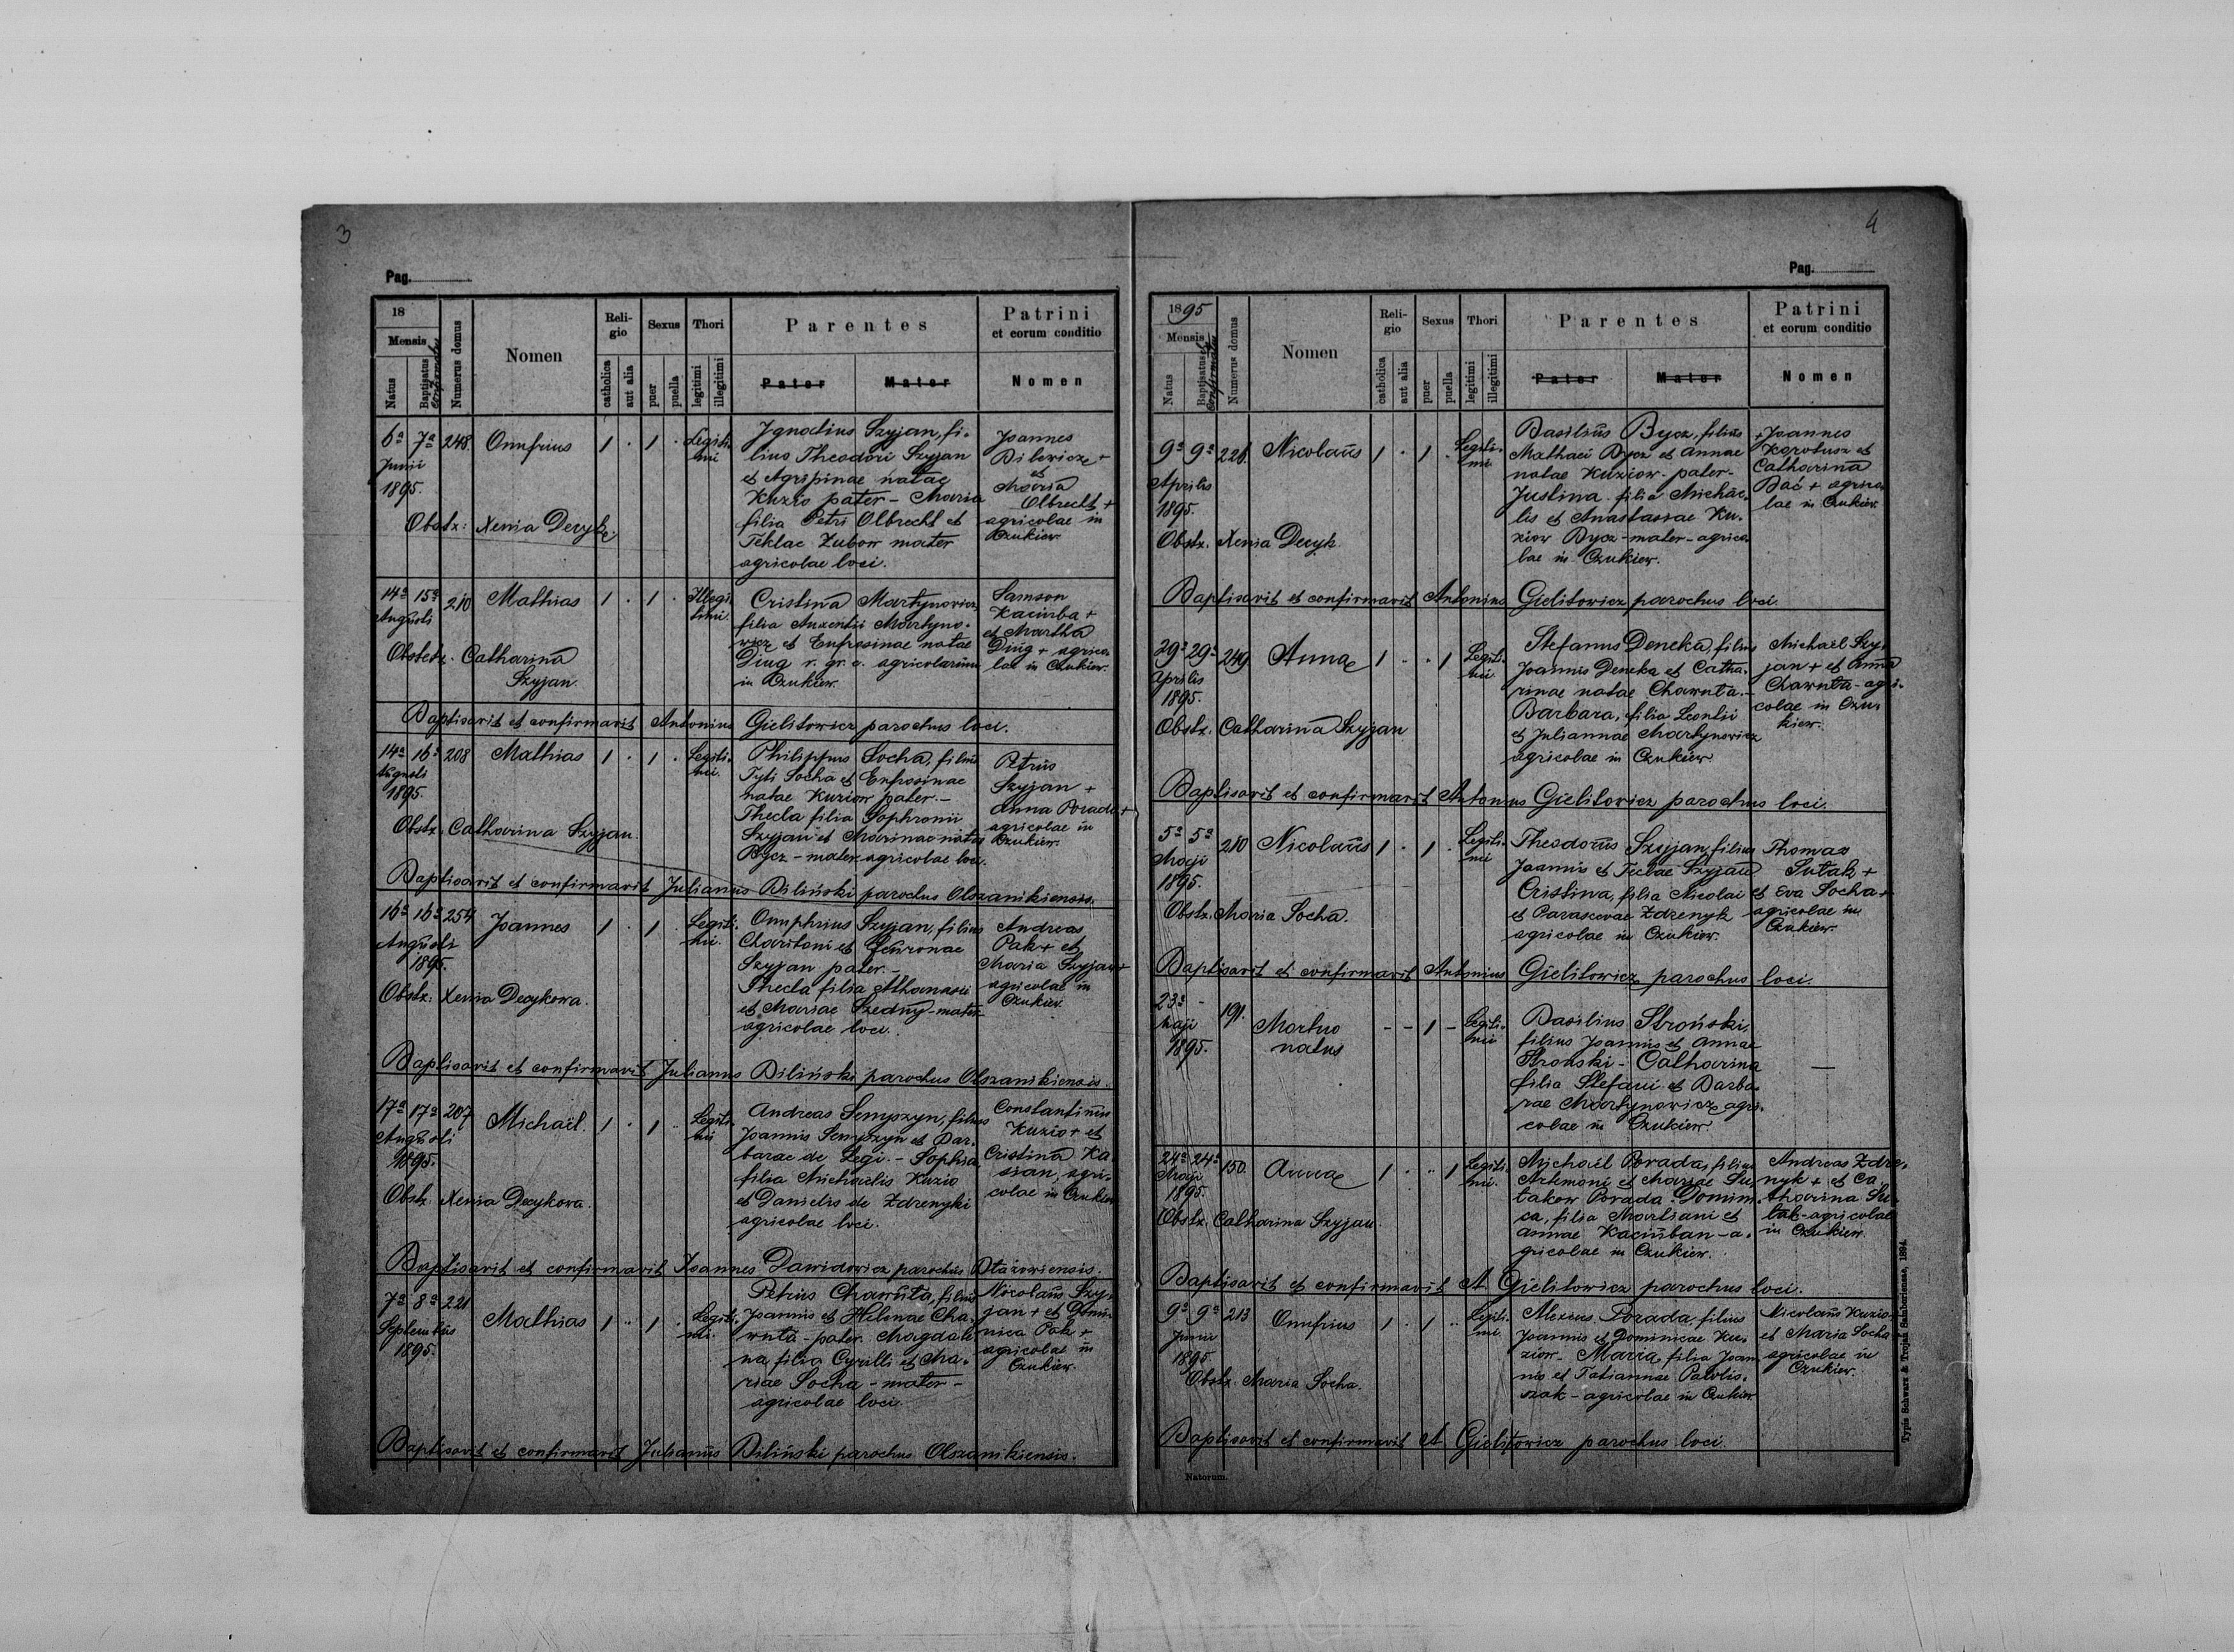 3
Pag.
18
Mensis
Natus
Baptisatus et confirmatus
Numerus domus
Nomen
Reli-
gio
catholica
aut alia
Sexus
puer
puella
Thori
legitimi
illegitimi
Parentes
Pater
Mater
Patrini
et eorum conditio
Nomen
6a 7a 248. Onufrius 1 . 1 . Legiti-
mi
Junii
1895.
Obstz: Xenia Decyk.
Ignatius Szyjan, fi-
lius Theodori Szyjan
et Agripinae natae
Kuzio pater - Maria
filia Petri Olbrecht et
Teklae Zubow mater
agricolae loci.
Joannes
Bilewicz +
et
Maria
Olbrecht +
agricolae in
Czukiew.
14a 15a 210 Mathias 1 . 1 . Illegi-
timi.
Augusti
Obstetr. Catharina
Szyjan.
Cristina Martynowicz,
filia Auxentii Martyno-
wicz et Eufrosinae natae
Diug r. gr. c. agricolarum
in Czukiew.
Samson
Kaciuba +
et Martha
Diug + agrico-
lae in Czukiew.
Baptisavit et confirmavit Antonius Gielitowicz parochus loci.
14a 16a 208 Mathias 1 . 1 . Legiti-
mi.
Augusti
1895.
Obstz. Catharina Szyjan.
Philippus Socha, filius
Tyti Socha et Eufrosinae
natae Kuziow pater.-
Thecla filia Sophronii
Szyjan et Marinae natae
Bycz - mater agricolae loci.
Petrus
Szyjan +
Anna Porada +
agricolae in
Czukiew.
Baptisavit et confirmavit Julianus Biliński parochus Olszanikiensis.
16a 16a 254 Joannes 1 . 1 . Legiti-
mi.
Augusti
1895.
Obstz: Xenia Decykowa.
Onuphrius Szyjan, filius
Charitoni et Fewronae
Szyjan pater.-
Thecla filia Athanasii
et Mariae Szedny - mater
agricolae loci.
Andreas
Pak + et
Maria Szyjan +
agricolae in
Czukiew.
Baptisavit et confirmavit Julianus Biliński parochus Olszanikiensis.
17a 17a 207 Michaël. 1 . 1 .. Legiti-
mi
Augusti
1895.
Obstz Xenia Decykowa.
Andreas Sempszyn, filius
Joannis Sempszyn et Bar-
barae de Legi.- Sophia,
filia Michaelis Kuzio
et Danielis de Zdrenyki
agricolae loci.
Constantinus
Kuzio + et
Cristina Ka
sian, agri-
colae in Czukiew
Baptisavit et confirmavit Joannes Dawidowicz parochus
7a 8a 221 Mathias 1 .. 1 . Legiti-
mi.
Septembris
1895.
Petrus Chawuta, filius
Joannis et Helenae Cha-
wuta - pater. Magdale
na, filia Cyrilli et Ma-
riae Socha - mater -
agricolae loci.
Nicolaus Szy-
jan + et Domi-
nica Pak +
agricolae in
Czukiew.
Baptisavit et confirmavit Julianus Biliński parochus Olszanikiensis.
4
Pag.
1895
Mensis
Natus
Baptisatus et confirmatus
Numerus domus
Nomen
Reli-
gio
catholica
aut alia
Sexus
puer
puella
Thori
legitimi
illegitimi
Parentes
Pater
Mater
Patrini
et eorum conditio
Nomen
9a 9a 221. Nicolaus 1 . 1 . Legiti-
mi.
Aprilis
1895.
Obstz. Xenia Decyk.
Basilius Bycz, filius
Mathaei Bycz et Annae
natae Kuziow - pater -
Justina filia Michae-
lis et Anastasiae Ku-
ziow Bycz - mater - agrico-
lae in Czukiew.
+ Joannes
Korotusz et
Catharina
Bać + agrico-
lae in Czukiew.
Baptisavit et confirmavit Antonius Gielitowicz parochus loci.
29a 29a 249 Anna 1 . . 1 Legiti-
mi.
Aprilis
1895.
Obstz. Catharina Szyjan
Stefanus Deneka, filius
Joannis Deneka et Catha-
rinae natae Chawuta.-
Barbara, filia Leontii
et Juliannae Martynowicz
agricolae in Czukiew
Michaël Szy-
jan + et Anna
Chawuta - agri-
colae in Czu-
kiew.
Baptisavit et confirmavit Antonius Gielitowicz parochus loci.
5a 5a 210 Nicolaus 1 . 1 . Legiti-
mi
Maji
1895.
Obstz. Maria Socha.
Theodorus Szyjan, filius
Joannis et Teclae Szyjan
Cristina, filia Nicolai
et Parascevae Zdrenyk
agricolae in Czukiew.
Thomas
Sutak +
et Eva Socha +
agricolae in
Czukiew.
Baptisavit et confirmavit Antonius Gielitowicz parochus loci.
23a - 191. Mortuo
natus - - 1 - Legiti-
mi
Maji
1895.
Basilius Stroński,
filius Joannis et Annae
Stronski - Catharina
filia Stefani et Barba-
rae Martynowicz agri-
colae in Czukiew.
—
24a 24a 150. Anna 1 . .. 1 Legiti-
mi.
Maji
1895.
Obstz. Catharina Szyjan.
Michaël Porada, filius
Artemoni et Mariae Su-
takow Porada. Domini-
ca, filia Martiani et
Annae Kaciuban - a-
gricolae in Czukiew.
Andreas Zdre-
nyk + et Ca-
tharina Su-
tak - agricolae
in Czukiew.
Baptisavit et confirmavit A Gielitowicz parochus loci.
9a 9a 213 Onufrius 1 . 1 .. Legiti-
mi
Junii
1895.
Obstz. Maria Socha.
Alexius Porada, filius
Joannis et Dominicae Ku-
ziow - Maria, filia Joan-
nis et Tatiannae Pawlis-
zak - agricolae in Czukiew
Nicolaus Kuzio
et Maria Socha
agricolae in
Czukiew.
Baptisavit et confirmavit A Gielitowicz parochus loci.
Natorum.
Typis Schwarz & Trojan Samborinae, 1894.